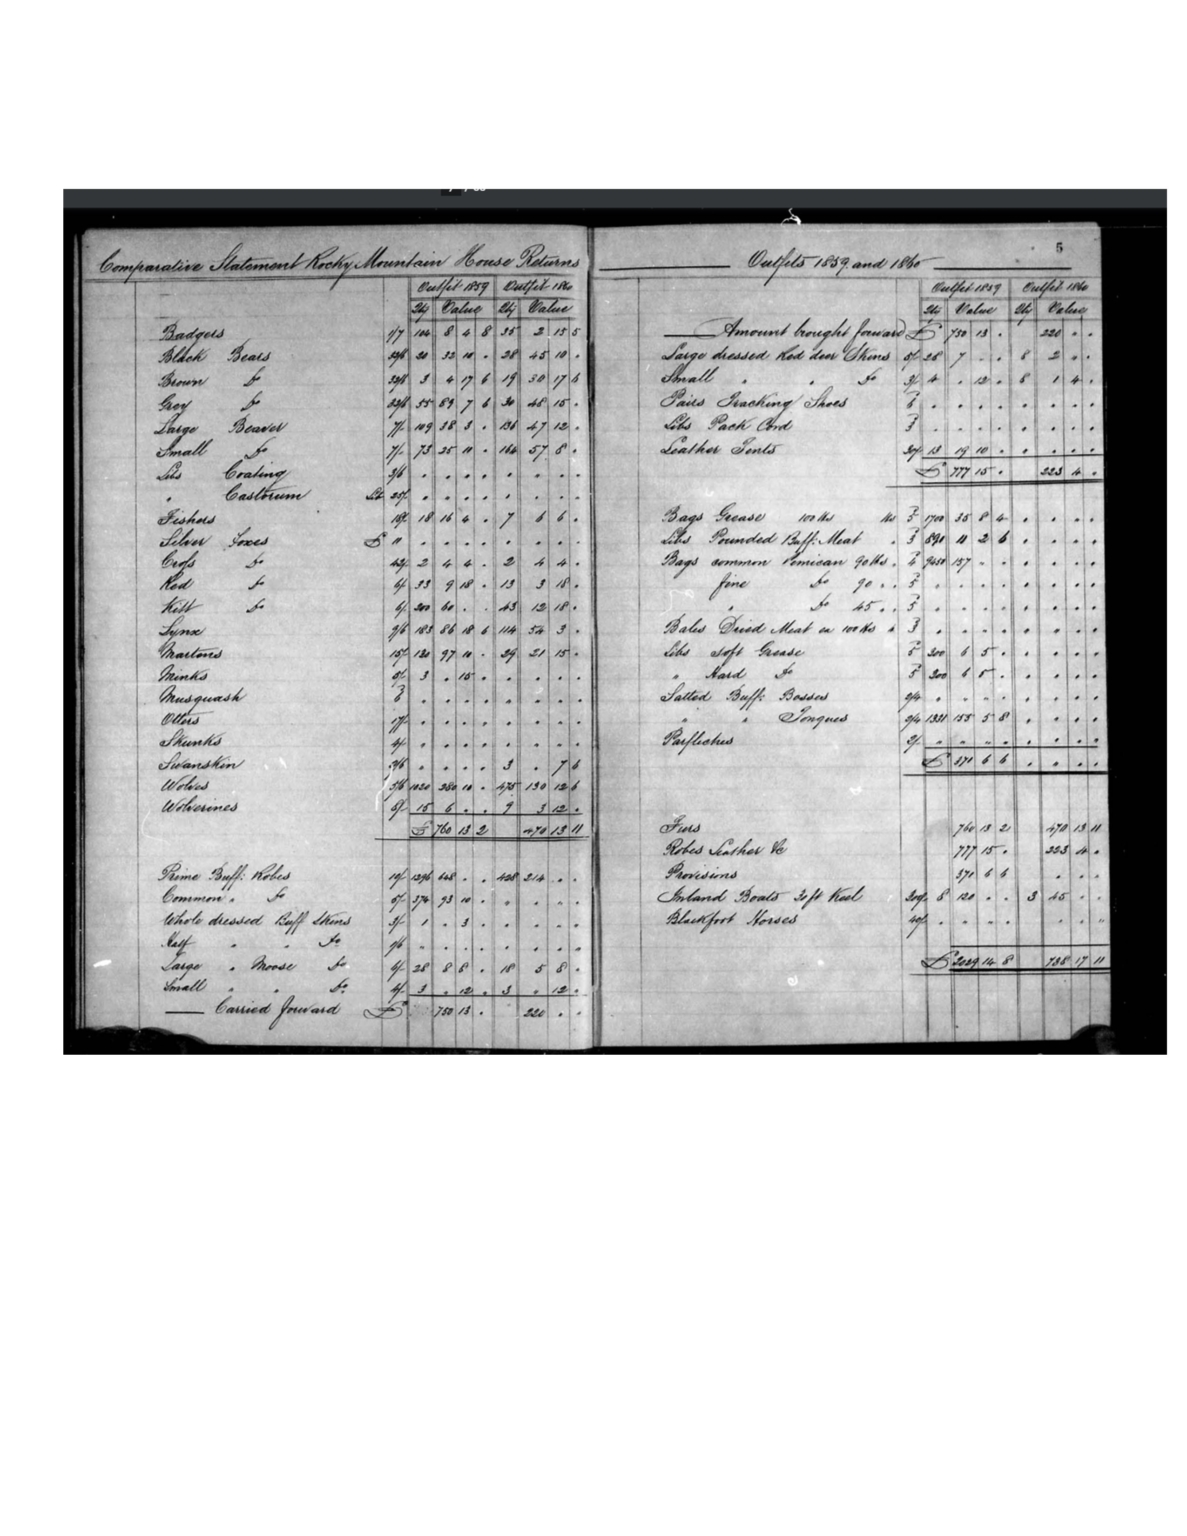 Comparative Statement Rocky Mountain House Returns
Outfit 1859 Outfit 1860
Qty Value Qty Value
Badgers 1/7 104 8 4 8 35 2 15 5
Black Bears 32/6 20 32 10 . 28 45 10 .
Brown Do 32/6 3 4 17 6 19 30 17 6
Grey Do 32/6 55 89 7 6 30 48 15 .
Large Beaver 7/. 109 38 3 . 136 47 12 .
Small Do 7/. 73 25 11 . 164 57 8 .
Lbs Coating 3/6 . . . . . . . .
" Castorum Lb 25/. . . . . . . . .
Fishers 18/. 18 16 4 . 7 6 6 .
Silver Foxes £ 11 . . . . . . . .
Cross Do 42/. 2 4 4 . 2 4 4 .
Red Do 6/. 33 9 18 . 13 3 18 .
Kitt Do 6/. 200 60 . . 43 12 18 .
Lynx 9/6 183 86 18 6 114 54 3 .
Martens 15/. 130 97 10 . 29 21 15 .
Minks 5/. 3 . 15 . . . . .
Musquash 6 . . . . . . . .
Otters 17/. . . . . . . . .
Skunks 4/. . . . . . . . .
Swanskin 2/6 . . . . 3 . 7 6
Wolves 5/6 1020 280 10 . 475 130 12 6
Wolverines 8/. 15 6 . . 9 3 12 .
£ 760 13 2 470 13 11
Prime Buff: Robes 10/. 1296 648 . . 428 214 . .
Common " Do 5/. 374 93 10 . . . . .
Whole dressed Buff Skins 3/. 1 . 3 . . . . .
Half " " Do 1/6 . . . . . . . .
Large " Moose Do 6/. 28 8 8 . 18 5 8 .
Small " " Do 4/. 3 . 12 . 3 . 12 .
Carried forward £ 750 13 . 220 . .
5
Outfits 1859 and 1860
Outfit 1859 Outfit 1860
Qty Value Qty Value
Amount brought forward £ 750 13 . 220 . .
Large dressed Red deer Skins 5/. 28 7 . . 8 2 . .
Small " " Do 3/. 4 . 12 . 8 1 4 .
Pairs Tracking Shoes 6 . . . . . . . .
Lbs Pack Cord 3 . . . . . . . .
Leather Tents 30/. 13 19 10 . . . . .
£ 777 15 . 223 4 .
Bags Grease 100 lbs lbs 5 1700 35 8 4 . . . .
Lbs Pounded Buff: Meat " 3 890 11 2 6 . . . .
Bags common Pemican 90 lbs " 4 9450 157 . . . . . .
fine Do 90 " . 5 . . . . . . . .
" Do 45 . . 5 . . . . . . . .
Bales Dried Meat ea 100 lbs " 3 . . . . . . . .
Lbs Soft Grease 5 300 6 5 . . . . .
" Hard Do 5 300 6 5 . . . . .
Salted Buff: Bosses 2/4 . . . . . . . .
" " Tongues 2/4 1331 155 5 8 . . . .
Parfleches 2/. . . . . . . . .
£ 371 6 6 . . . .
Furs 760 13 2 470 13 11
Robes Leather &c 777 15 . 223 4 .
Provisions 371 6 6 . . .
Inland Boats 30 ft Keel 300/. 8 120 . . 3 45 . .
Blackfoot Horses 40/. . . . . . . .
£ 2029 14 8 738 17 11